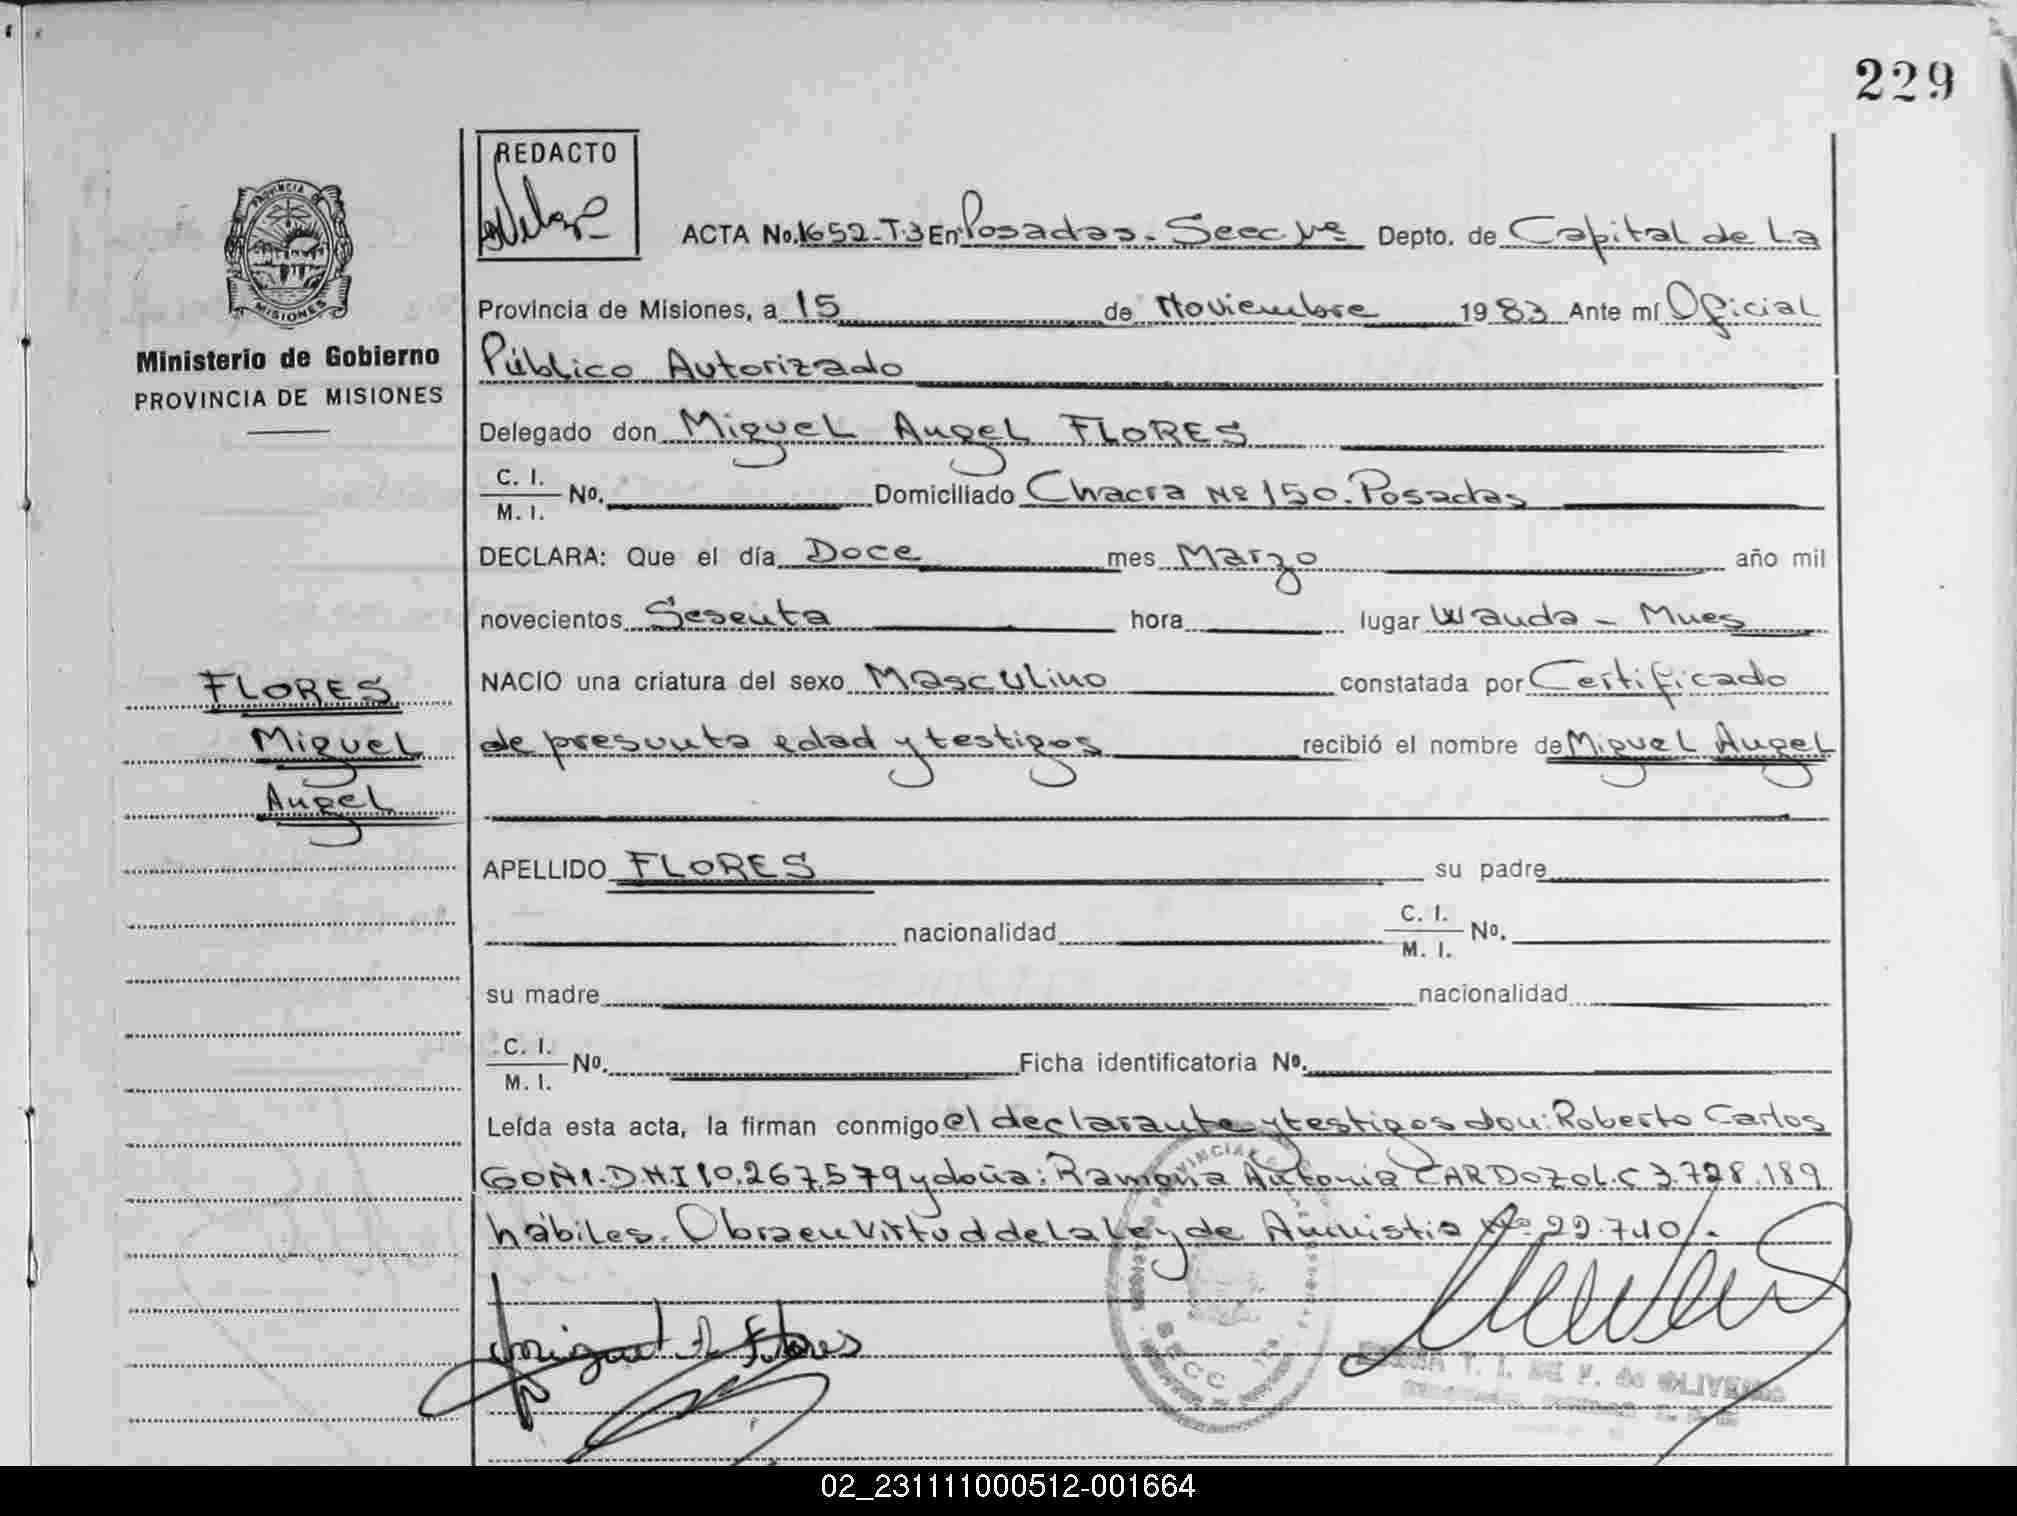 229
REDACTO
PROVINCIA DE
MISIONES
Ministerio de Gobierno
PROVINCIA DE MISIONES
ACTA No. 1652-T.3 En Posadas - Secc. 1ra Depto. de Capital de La
Provincia de Misiones, a 15 de Noviembre 1983 Ante mí Oficial
Público Autorizado
Delegado don Miguel Angel FLORES
C. I.
M. I. No. Domiciliado Chacra Nº 150. Posadas
DECLARA: Que el día Doce mes Marzo año mil
novecientos Sesenta hora lugar Wanda - Mnes
FLORES
Miguel
Angel
NACIO una criatura del sexo Masculino constatada por Certificado
de presunta edad y testigos recibió el nombre de Miguel Angel
APELLIDO FLORES su padre
nacionalidad C. I.
M. I. No.
su madre nacionalidad
C. I.
M. I. No. Ficha identificatoria No.
Leída esta acta, la firman conmigo el declarante y testigos don: Roberto Carlos
GOÑI. D.N.I 10.267.579 y doña: Ramona Antonia CARDOZO L.C 3.728.189
hábiles. Obra en virtud de la Ley de Amnistia Nº 22.710.
Miguel A Flores
SECC
02_231111000512-001664